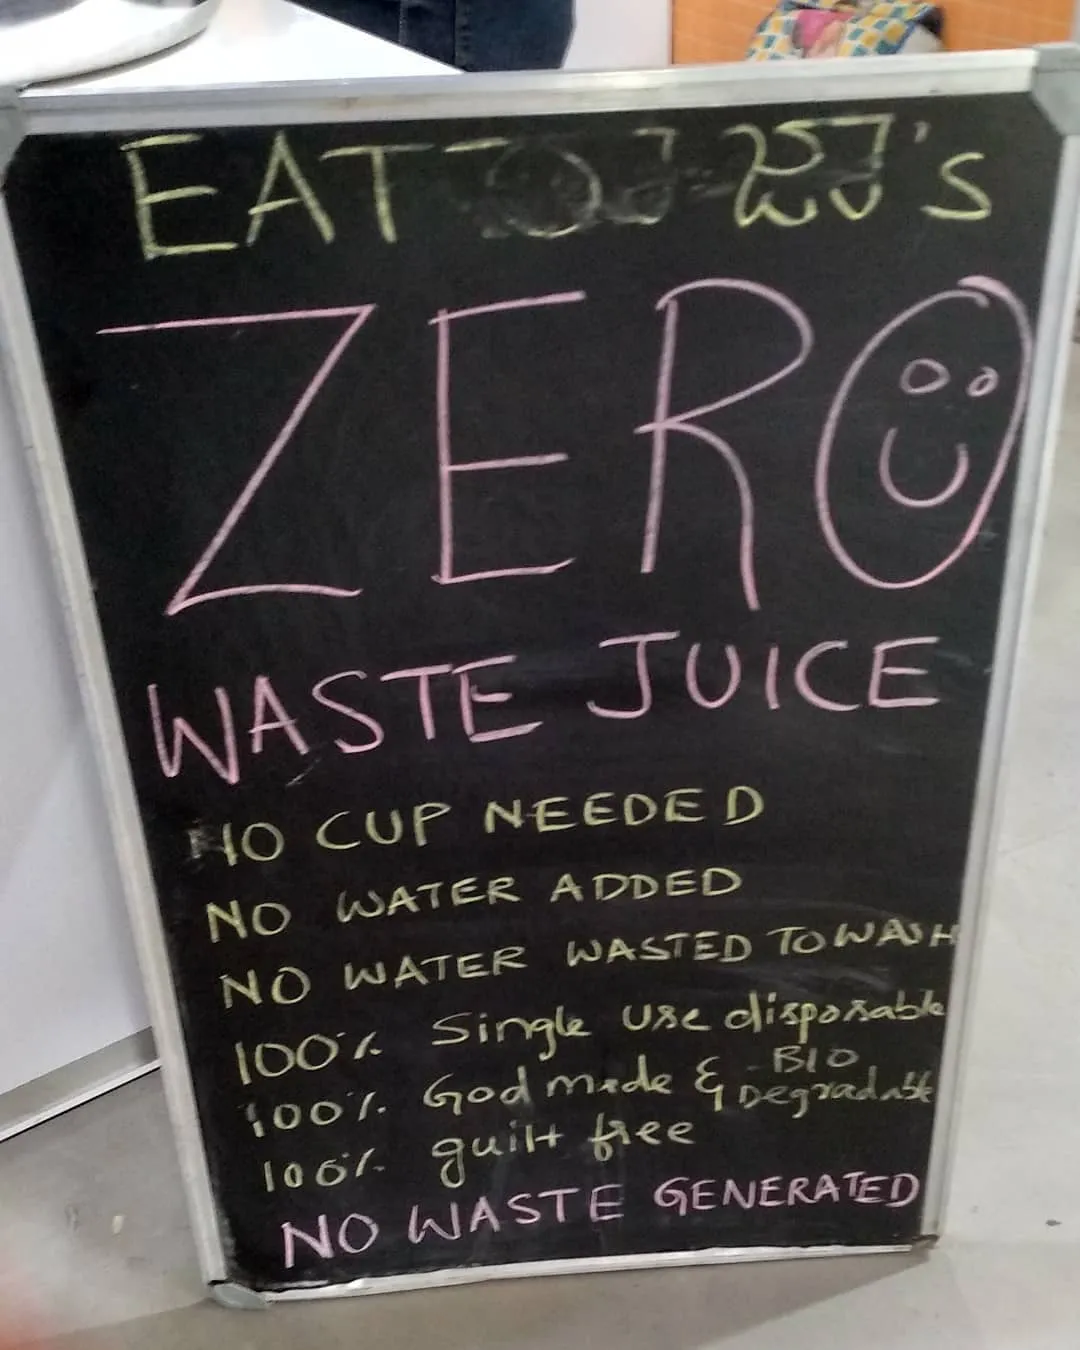 EAT ರಾಜಾ's
ZERO
WASTE JUICE
NO CUP NEEDED
NO WATER ADDED
NO WATER WASTED TO WASH
100% Single use disposable
100% God made & BIO
Degradable
100% guilt free
NO WASTE GENERATED